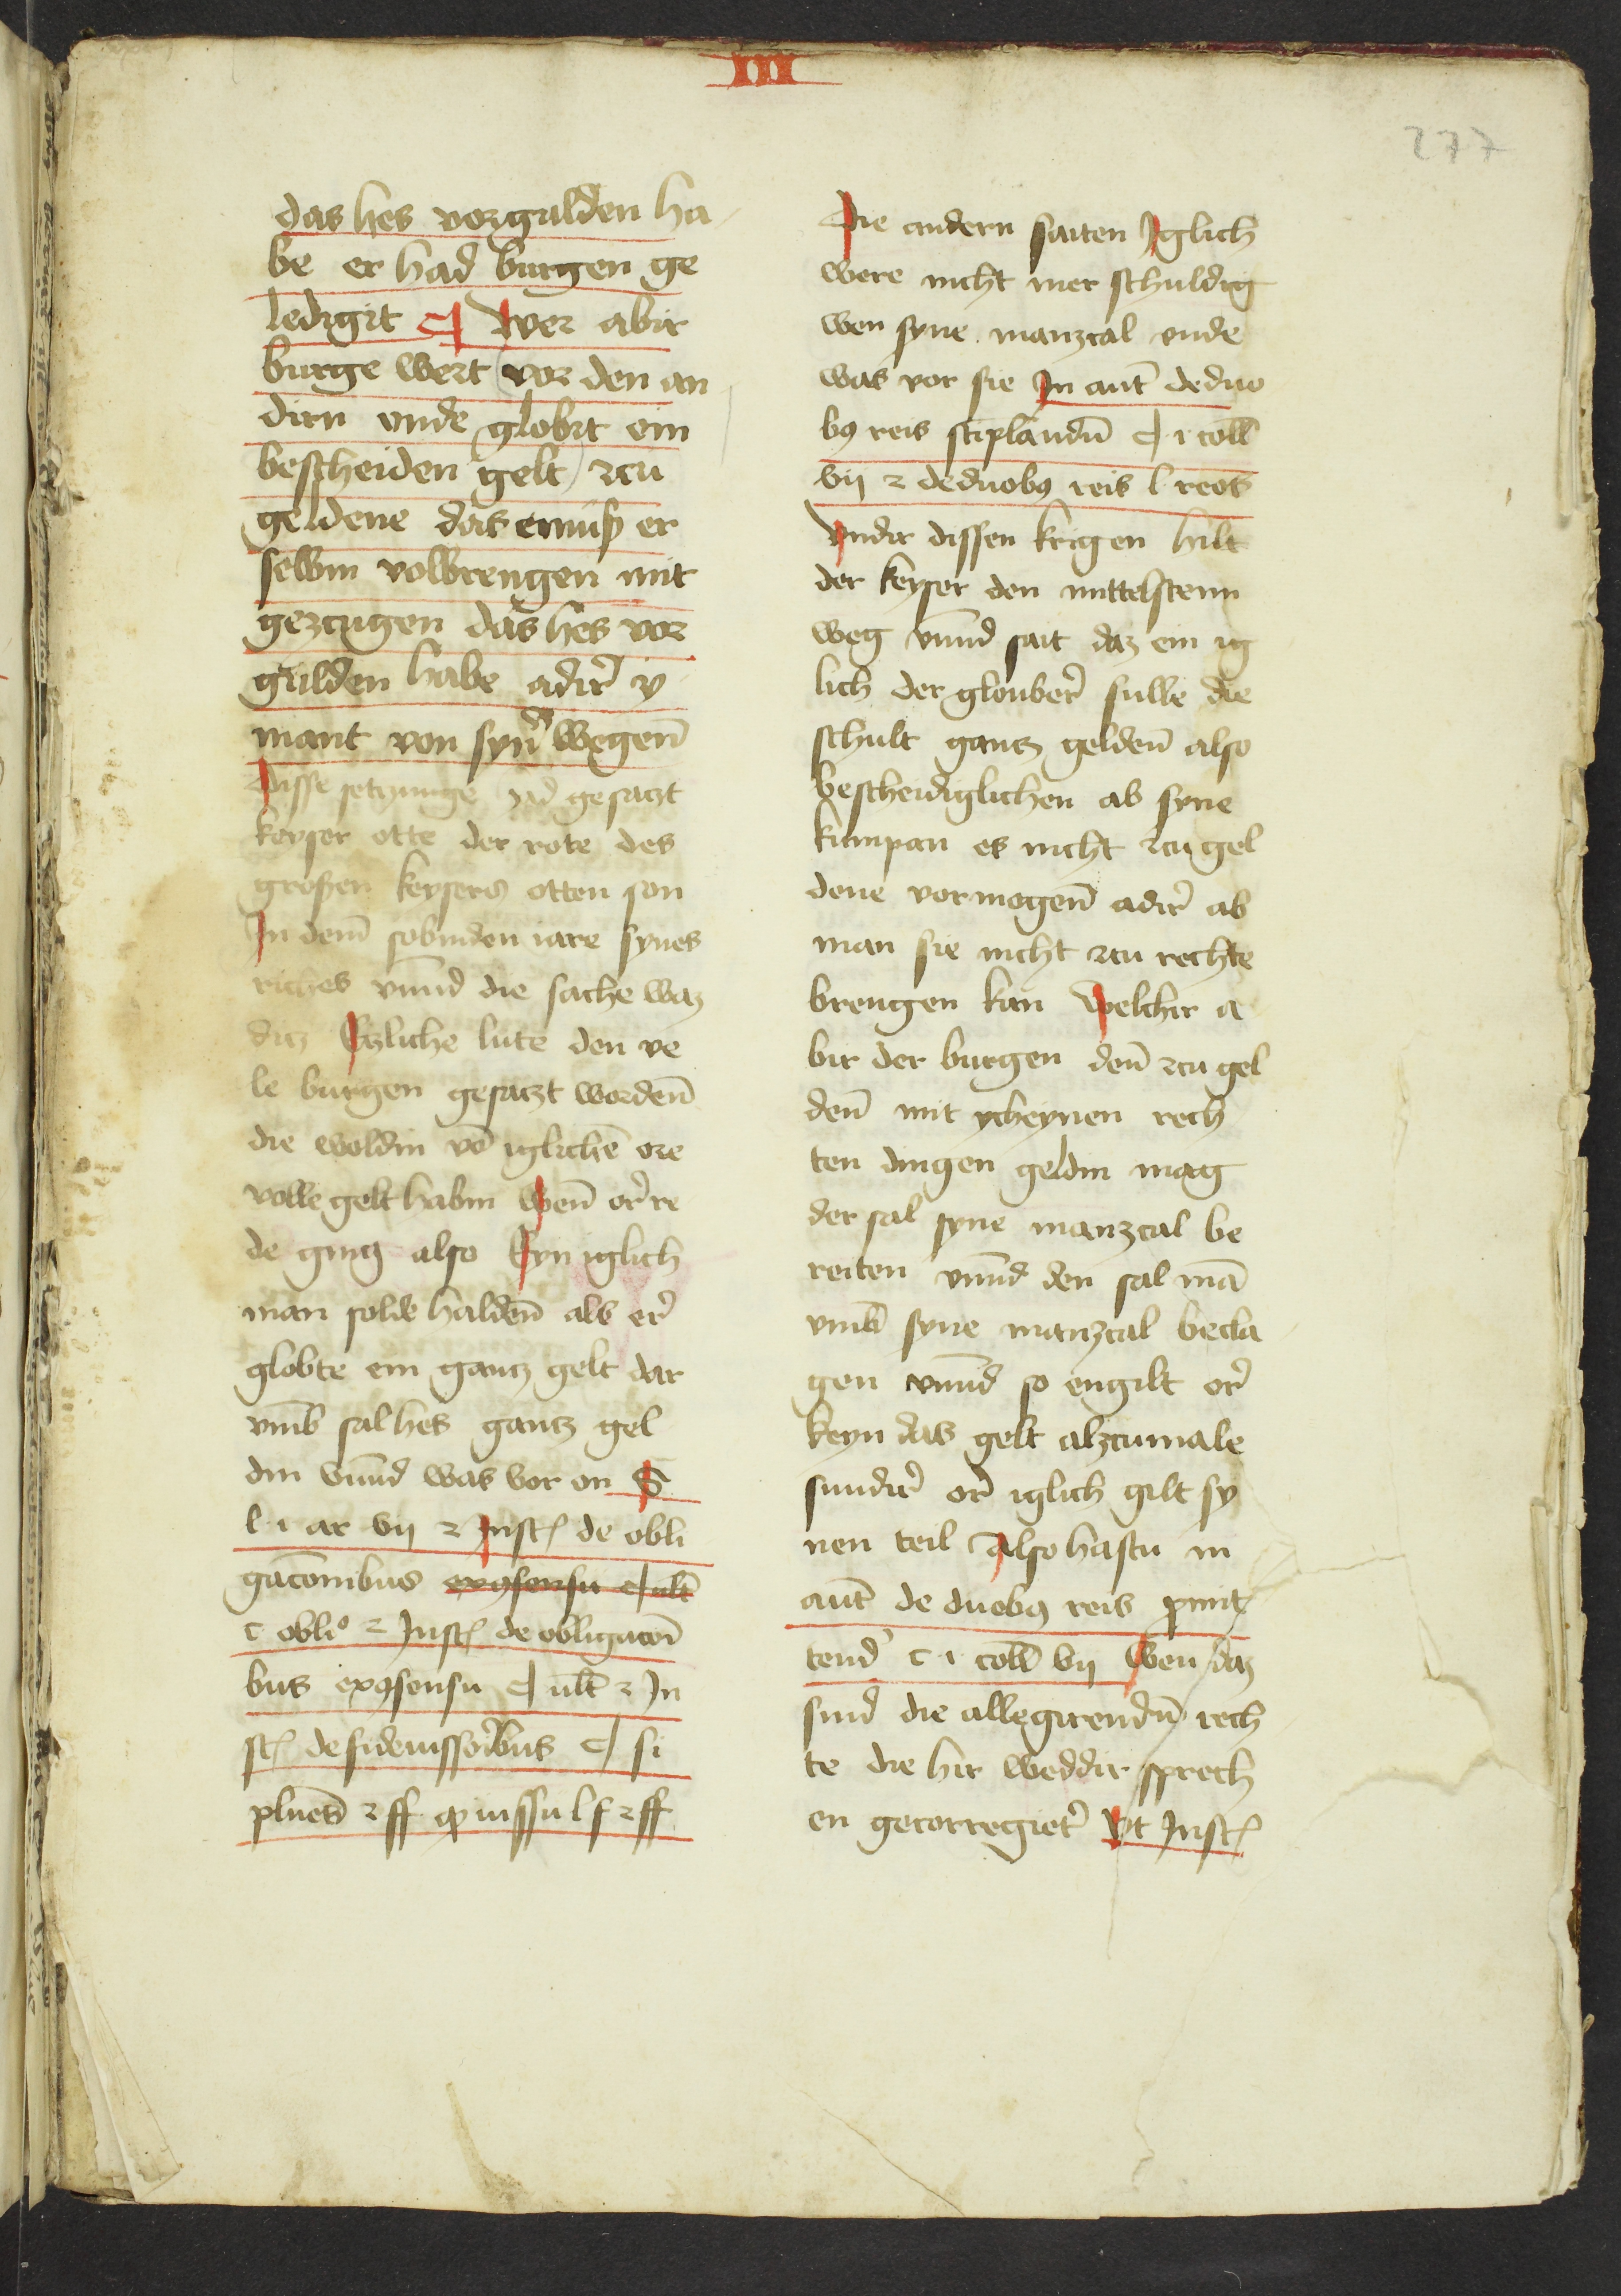 III
277
das hes vorgulden ha
be er had burgen ge
ledigit ¶ Wer abir
burge wert vor den an
dirn vnde globit ein
bescheiden gelt zcu
geldene das emuß er
selbin volbrengen mit
gezcugen das hes vor
gulden habe adir̉ y
mant von syn̅ wegen̅
Disse setzunge hd gesaczt
keyser otte der rote des
großen keysers otten son
In dem̅ sobinden iare synes
riches vnnd die sache waz
diz Etzliche lute den ve
le burgen gesaczt worden̅
die woldin vō iglichē ore
volle gelt habin Wen̅ or̉ re
de ging also Eyn iglich
man solde halden̅ als er̉
globte ein gantz gelt dar
vm̅b sal hes gantz gel
din vnnd was vor on S
l i ar vij ⁊ Inst de obli
gac̅onibus exꝯsensu ¶ ult̅
c obliº ⁊ Inst de obligac̅oi
bus exꝯsensu ¶ ult̅ ⁊ In
st de fideiussor̉ibus ¶ si
plures ⁊ ff ꝙ iussu l f ⁊ ff
Die andern saiten Iglich
were nicht mer schuldig
wen syne manzcal vnde
was vor sie In aut̅ de duo
bꝯ reis stiplandu̅ ¶ i coll̅
vij ⁊ de duobꝯ reis l reos
Vndir dissen krigen hilt
der keyser den mittelstenn
weg vnnd sait daz ein ig
lich der glouber̉ sulle die
schult gantz gelden̅ also
bescheidiglichen ab syne
kumpan es nicht zcu gel
dene vormogen̅ adir̉ ab
man sie nicht zcu rechte
brengen kan Welchir a
bir der burgen den̅ zcu gel
den̅ mit ycheynen rech
ten dingen geldin mag
der sal syne manzcal be
reiten vnnd den sal mā
vm̅b syne manzcal becla
gen vnnd so engilt or̉
keyn das gelt alzcumale
sundir̉ or̉ iglich gilt sy
nen teil Also hastu in
aut̅ de duobꝯ reis ꝓmit
tend c i coll̅ vij Wen daz
sind die allegirendu̅ rech
te die hir weddir sprech
en gecorregiet̉ Vt Inst